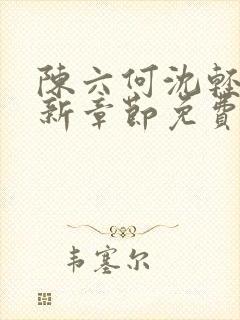 陳六何沈輕
新章節免費
韦塞尔